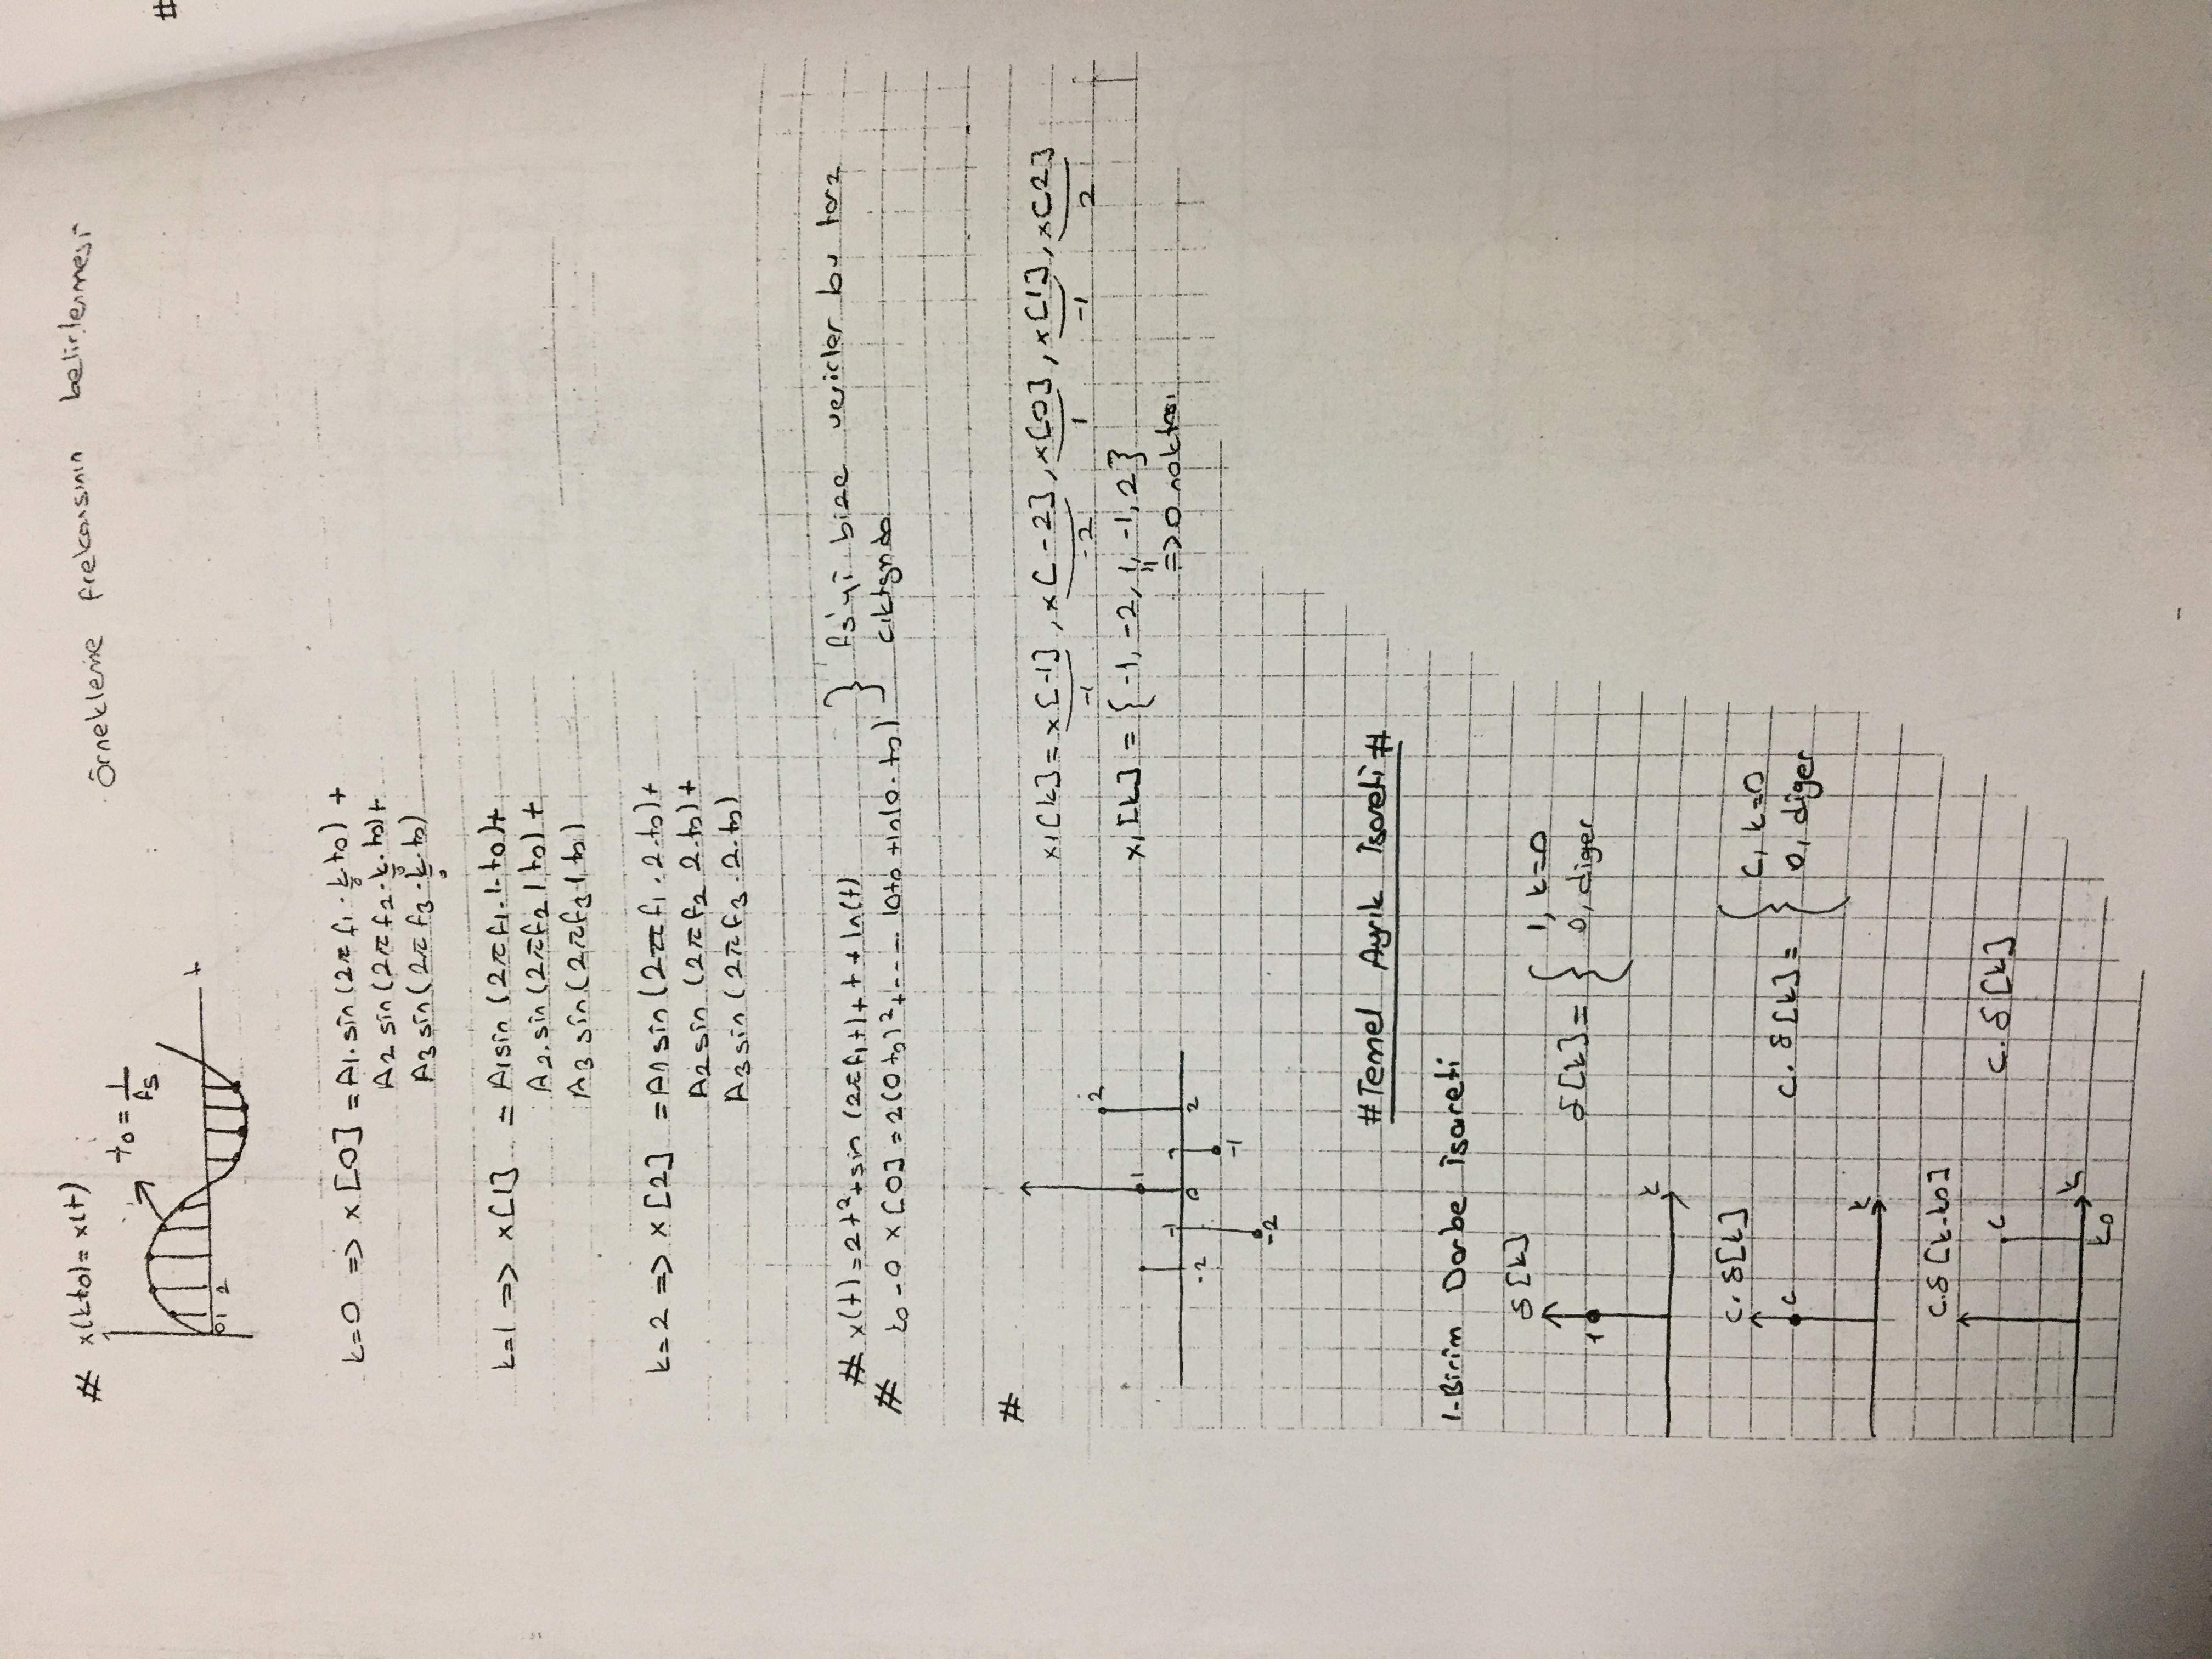 # x(kt0)= x(t)
Örnekleme frekansının belirlenmesi
t0 = 1/fs
t
0 1 2
#
k=0 => x[0] = A1.sin(2π f1 . k.t0) +
0
A2 sin(2π f2 . k. t0)+
0
A3 sin(2π f3 . k. t0)
0
k=1 => x[1] = A1sin (2π f1. 1. t0)+
A2. sin(2πf2 1 t0) +
A3 sin(2πf3 1 t0)
k=2 => x[2] = A1 sin(2π f1 . 2. t0)+
A2 sin (2π f2 2. t0) +
A3 sin (2π f3 . 2. t0)
# x(t)=2t²+sin (2πf1t)+ t + ln(t) } fs'yi bize verirler bu tarz
# t0-0 x[0] = 2(0 t0)²+---- 10t0 +ln(0. t0) çıktığında
#
x1[k] = x[-1], x[-2], x[0], x[1], x[2]
-1 -2 1 -1 2
x1[k] = {-1, -2, 1, -1, 2}
=> 0 noktası
2
1
-2 -1 0 1 2
-1
-2
#Temel Ayrık İşareti#
1-Birim Darbe işareti
δ[k]
1
k
δ[k] = { 1, k=0
0, diger
c. δ[k]
c
k
c. δ[k] = { c, k=0
0, diğer
c.δ [k-k0]
c
c. δ[k]
k
k0